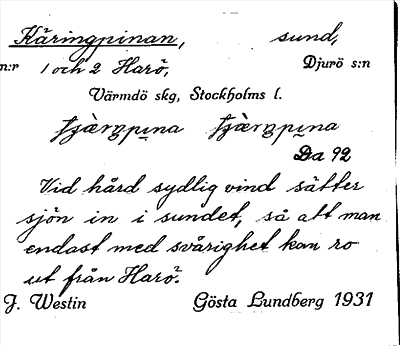 Käringpinan, sund,
n:r 1 och 2 Harö, Djurö s:n
Värmdö skg, Stockholms l.
Da 92
Vid hård sydlig vind sätter
sjön in i sundet, så att man
endast med svårighet kan ro
ut från Harö.
J. Westin Gösta Lundberg 1931